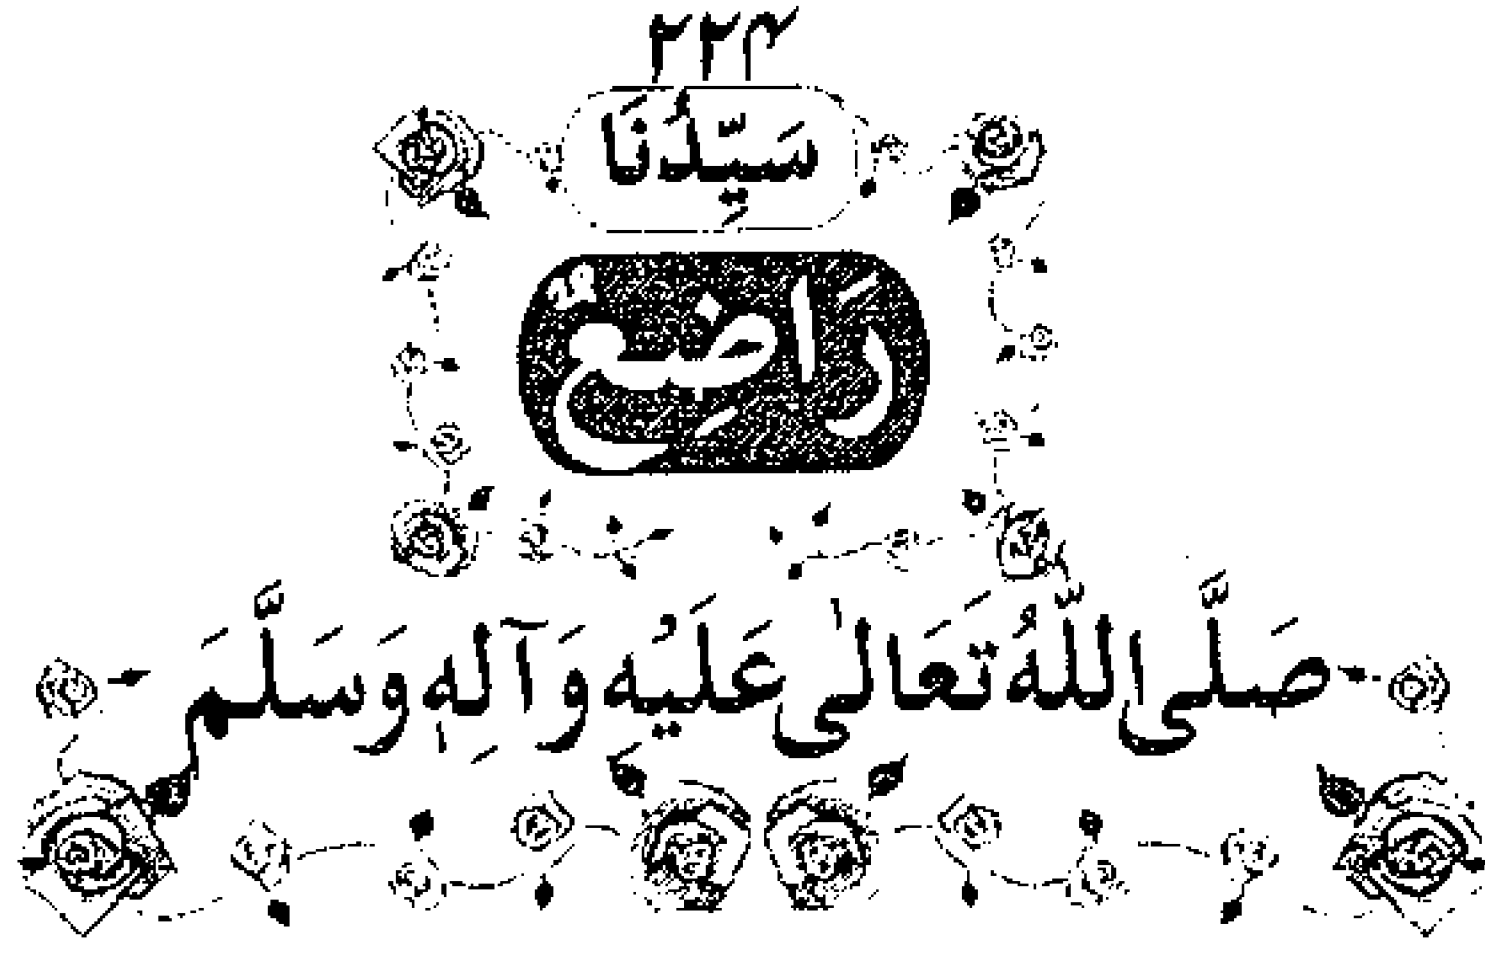 ۲۲۴
سَيِّدُنَا
رَاضِعٌ
صَلَّى اللّٰهُ تَعَالٰى عَلَيْهِ وَآلِهٖ وَسَلَّمَ